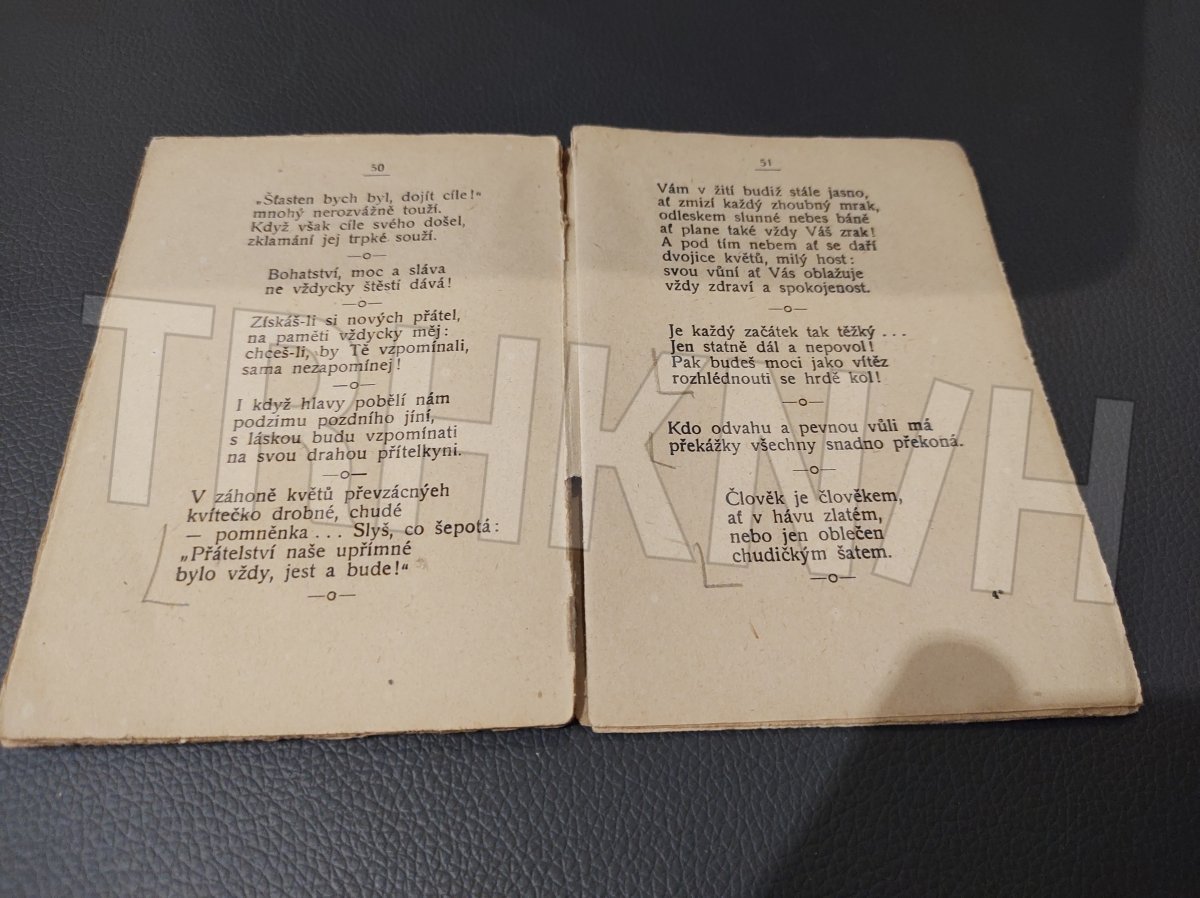 50
„Šťasten bych byl, dojít cíle!“
mnohý nerozvážně touží.
Když však cíle svého došel,
zklamání jej trpké souží.
—o—
Bohatství, moc a sláva
ne vždycky štěstí dává!
—o—
Získáš-li si nových přátel,
na paměti vždycky měj:
chceš-li, by Tě vzpomínali,
sama nezapomínej!
—o—
I když hlavy pobělí nám
podzimu pozdního jíní,
s láskou budu vzpomínati
na svou drahou přítelkyni.
—o—
V záhoně květů převzácnýeh
kvítečko drobné, chudé
— pomněnka ... Slyš, co šepotá:
„Přátelství naše upřímné
bylo vždy, jest a bude!“
—o—
51
Vám v žití budiž stále jasno,
ať zmizí každý zhoubný mrak,
odleskem slunné nebes báně
ať plane také vždy Váš zrak!
A pod tím nebem ať se daří
dvojice květů, milý host:
svou vůní ať Vás oblažuje
vždy zdraví a spokojenost.
—o—
Je každý začátek tak těžký ...
Jen statně dál a nepovol!
Pak budeš moci jako vítěz
rozhlédnouti se hrdě kol!
—o—
Kdo odvahu a pevnou vůli má
překážky všechny snadno překoná.
—o—
Člověk je člověkem,
ať v hávu zlatém,
nebo jen oblečen
chudičkým šatem.
—o—
TRHKNIH